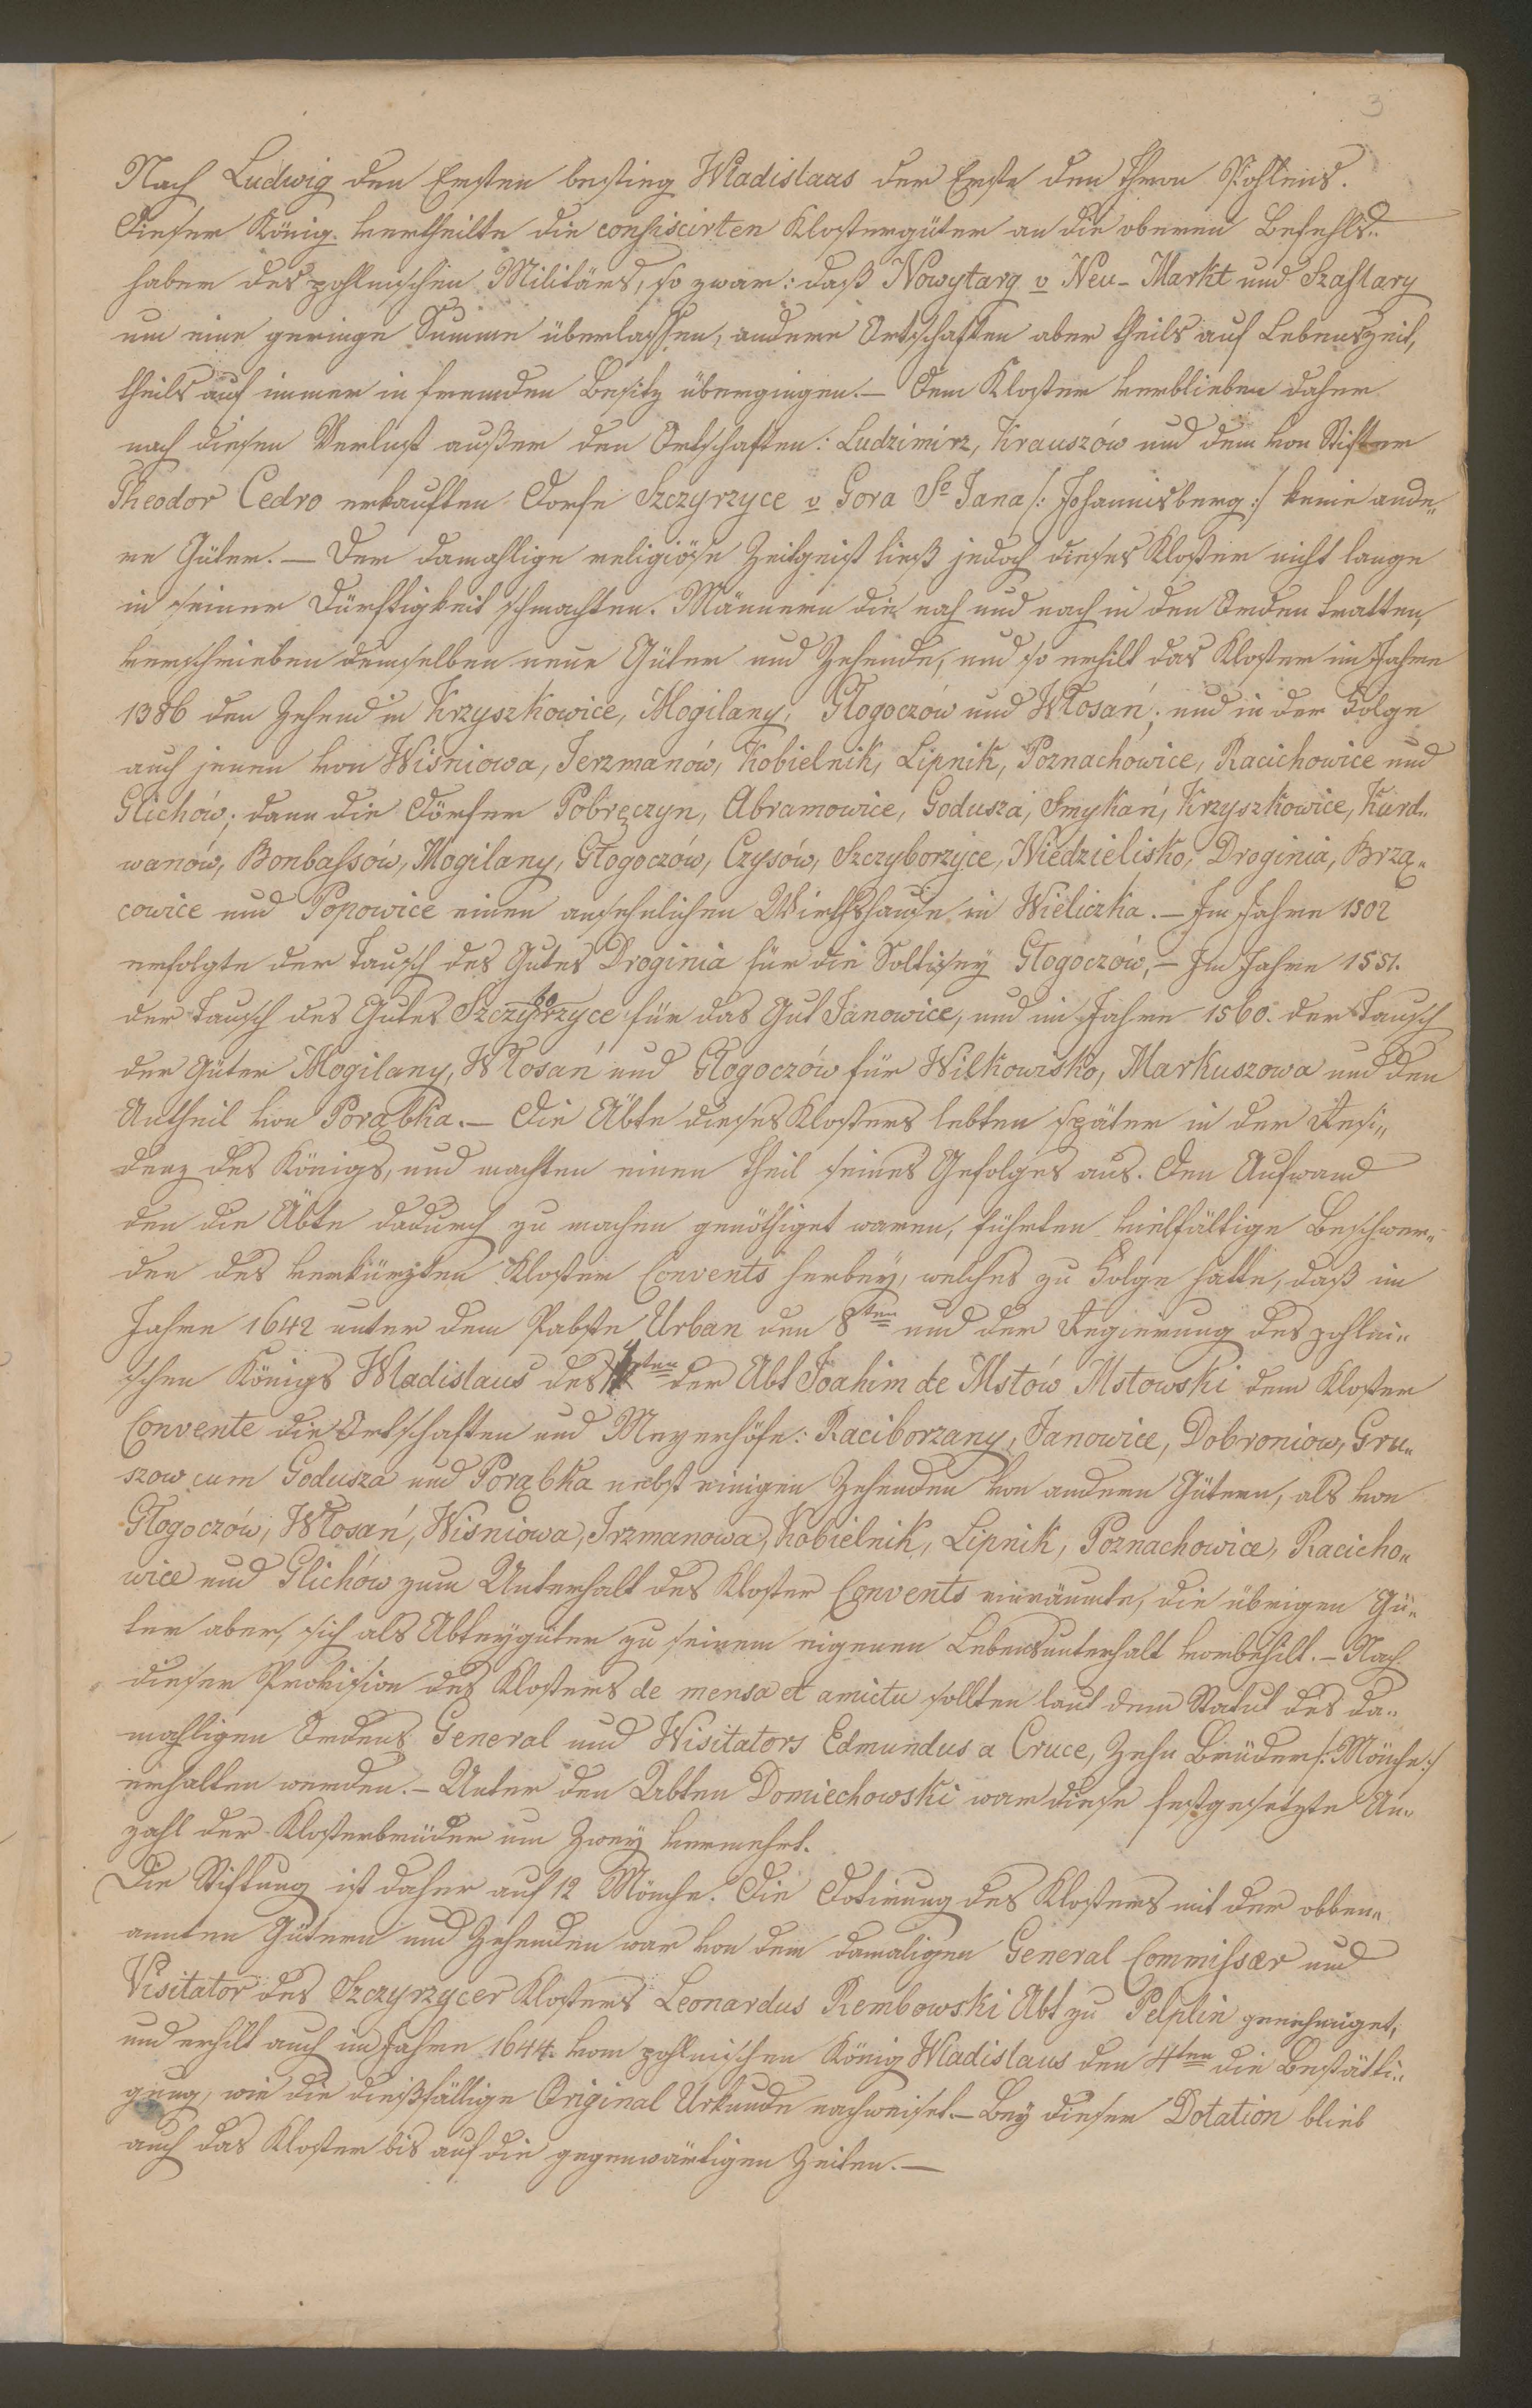 3
Nach Ludwig den Ersten bestieg Wladislaus der Erste den Thron Pohlens.
Dieser König vertheilte die confiscirten Klostergüter an die oberen Befehls„
haber des pohlnischen Militärs, so zwar: daß Nowytarg v Neu-Markt und Szaflary
um eine geringe Summe überlassen, andere Ortschaften aber theils auf Lebenszeit,
theils auf immer in fremden Besitz übergingen.— Dem Kloster verblieben daher
nach diesen Verlust außer den Ortschaften: Ludzimirz, Krauszów und dem von Stifter
Theodor Cedro erkauften Dorfe Szczyrzyce v Gora Sº Jana /: Johannisberg :/ keine ande„
re Güter.— Der damahlige religiöse Zeitgeist ließ jedoch dieses Kloster nicht lange
in seiner Dürftigkeit schmachten. Männern die nach und nach in den Orden tratten,
verschrieben demselben neue Güter und Zehende, und so erhilt das Kloster im Jahre
1386 den Zehend in Krzyszkowice, Mogilany, Głogoczów und Włosań; und in der Folge
auch jenen von Wisniowa, Jerzmanów, Kobielnik, Lipnik, Poznachowice, Racichowice und
Glichów; dann die Dörfer Pobręczyn, Abramowice, Godusza, Smykań, Krzyszkowice, Kurd„
wanów, Bonbaſsów, Mogilany, Głogoczów, Czysów, Szczyborzyce, Niedzielisko, Droginia, Brzą„
cowice und Popowice einen ansehnlichen Wirthshause in Wieliczka.— Im Jahre 1502
erfolgte der Tausch des Gutes Droginia für die Soltisey Głogoczów,— Im Jahre 1551.
der Tausch des Gutes Szczyborzyce für das Gut Janowice, und im Jahre 1560. der Tausch
der Güter Mogilany, Włosań und Głogoczów für Wilkowisko, Markuszowa und den
Antheil von Porąbka.— Die Äbte dieses Klosters lebten später in der Resi„
denz des Königs, und machten einen Theil seines Gefolges aus. Den Aufwand
den die Äbte dadurch zu machen genöthiget waren, führten vielfältige Beschwer„
den des verkürzten Kloster Convents herbey, welches zu Folge hatte, daß im
Jahre 1642 unter dem Pabste Urban den 8ten und der Regierung des pohlni„
schen Königs Wladislaus des 4ten der Abt Joahim de Mstów Mstowski dem Kloster
Convente die Ortschaften und Meyerhöfe: Raciborzany, Janowice, Dobroniow, Gru„
szow cum Godusza und Porąbka nebst einigen Zehenden von andern Gütern, als von
Głogoczów, Włosań, Wisniowa, Irzmanowa, Kobielnik, Lipnik, Poznachowice, Racicho„
wice und Glichów zum Unterhalt des Kloster Convents einräumte, die übrigen Gü„
ter aber, sich als Abteygüter zu seinem eigenen Lebensunterhalt vorbehilt.— Nach
dieser Provision des Klosters de mensa et amictu sollten laut dem Statut des da„
mahligen Ordens General und Wisitators Edmundus a Cruce, Zehn Brüder /: Mönche :/
erhalten werden.— Unter den Abten Domiechowski war diese festgesetzte An„
zahl der Klosterbrüder um Zwey vermehrt.
Die Stiftung ist daher auf 12 Mönche. Die Dotirung des Klosters mit der obben„
annten Gütern und Zehenden war von dem damaligen General Commiſsaer und
Visitator des Szczyrzycer Klosters Leonardus Rembowski Abt zu Pelplin genehmiget,
und erhilt auch im Jahre 1644. vom pohlnischen König Wladislaus den 4ten die Bestätti„
gung, wie die dießfällige Original Urkunde nachweiset.— Bey dieser Dotation blieb
auch das Kloster bis auf die gegenwärtigen Zeiten.—